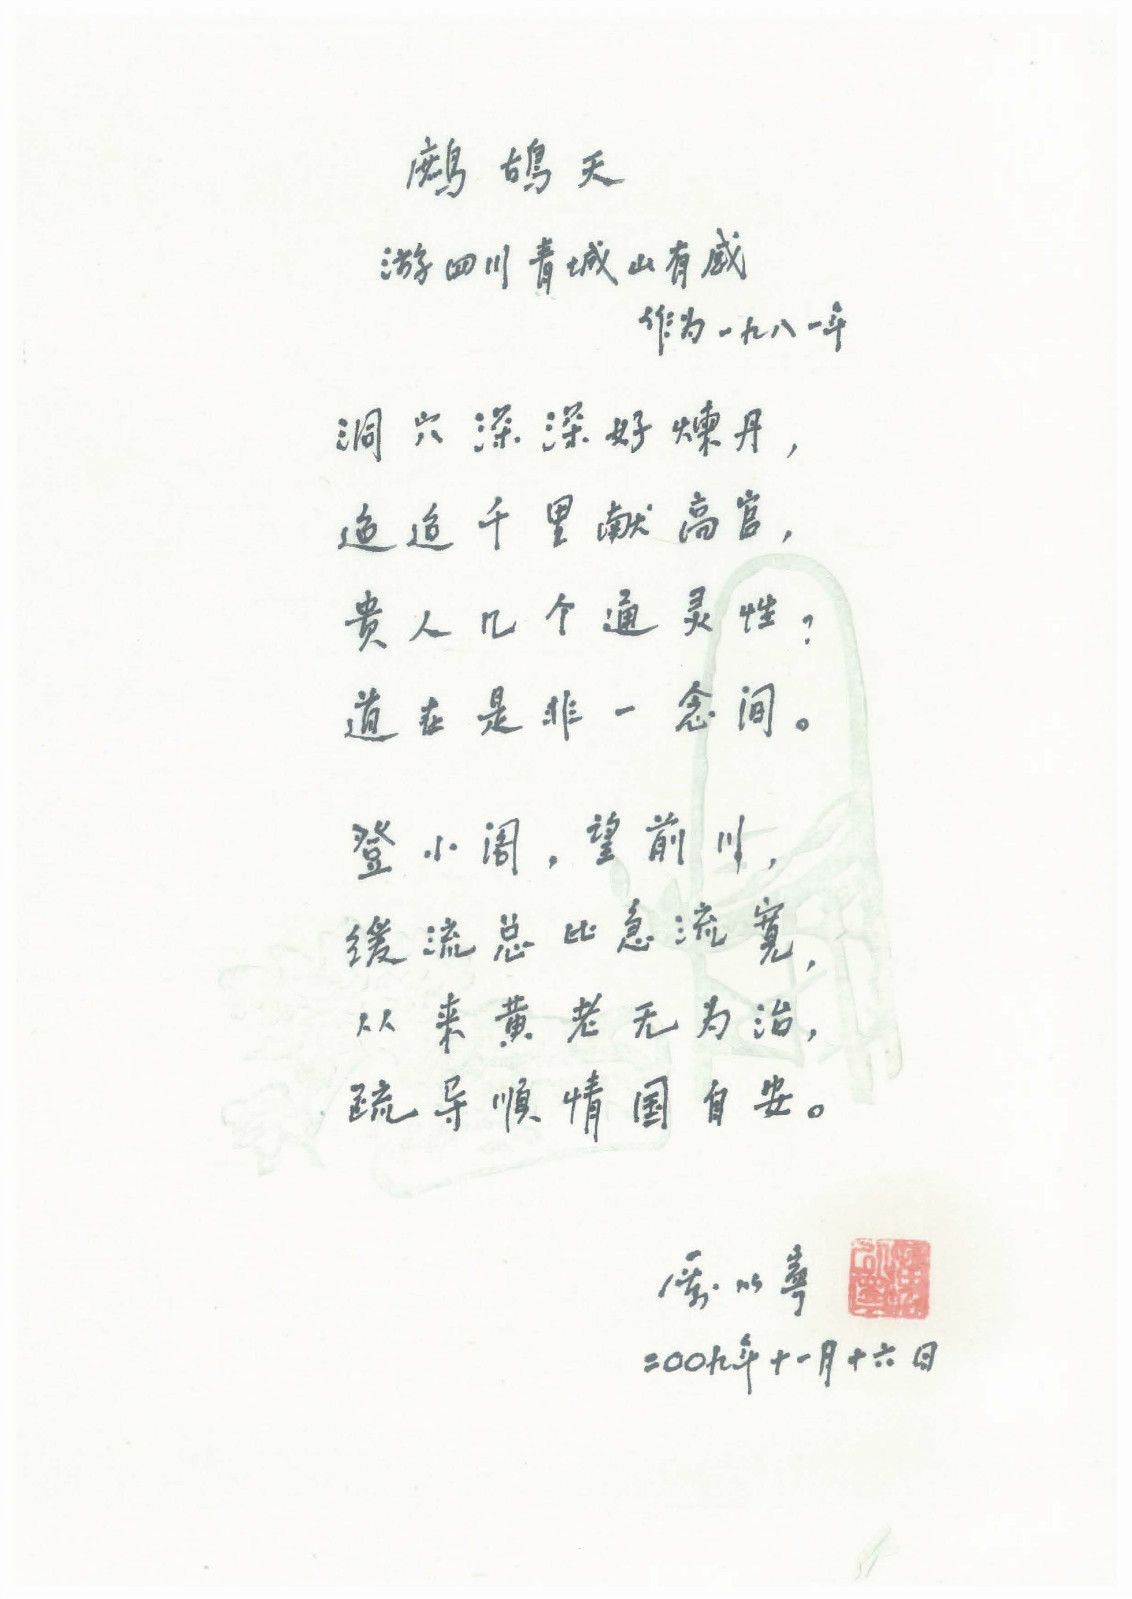 鷓鴣天
游四川青城山有感
作为一九八一年
洞穴深深好煉丹，
迢迢千里献高官，
贵人几个通灵性？
道在是非一念间。
登小阁，望前川，
缓流总比急流寬，
从来黄老无为治，
疏导順情国自安。
厲以寧
二〇〇九年十一月十六日